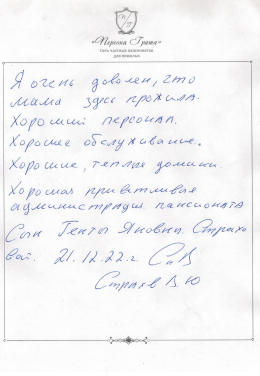 «Персона Грата»
Сеть частных пансионатов
для пожилых
Я очень доволен, что
мама здесь прожила.
Хороший персонал.
Хорошее обслуживание.
Хорошие, теплые домики.
Хорошая приветливая
администрация пансионата
Сын Генты Яновны Страхо
вой. 21.12.22.г.
Страхов В.Ю